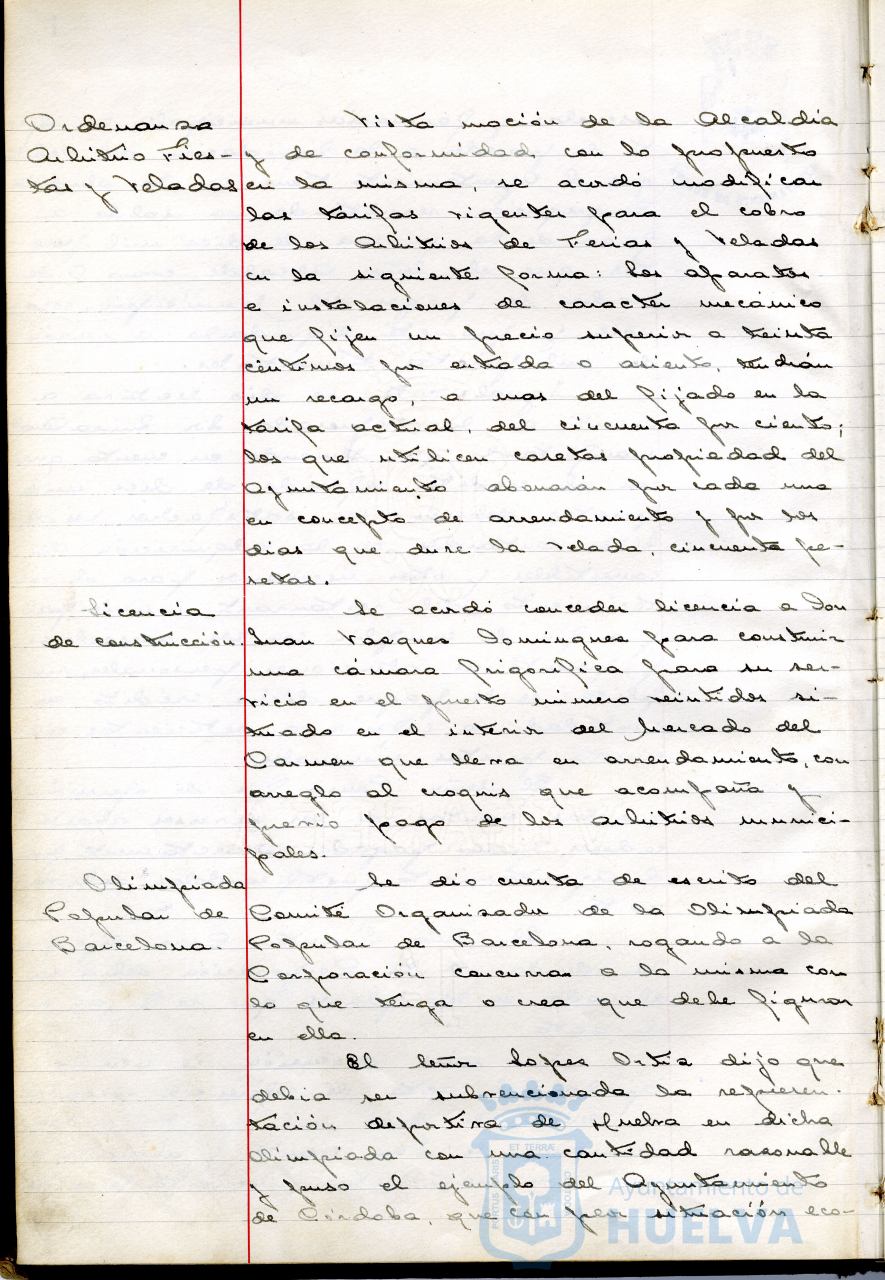 Ordenansa
Arbitrio Fies-
tas y Veladas
Vista moción de la Alcaldia
y de conformidad con lo propuesto
en la misma, se acordó modificar
las tarifas vigentes para el cobro
de los Arbitrios de Ferias y Veladas
en la siguiente forma: Los aparatos
e instalaciones de caracter mecánico
que fijen un precio superior a treinta
céntimos por entrada o asiento, tendrán
un recargo, a mas del fijado en la
tarifa actual, del cincuenta por ciento;
los que utilicen casetas propiedad del
Ayuntamiento abonarán por cada una
en concepto de arrendamiento y por los
dias que dure la Velada, cincuenta pe-
setas.
Licencia
de construcción.
Se acordó conceder licencia a Don
Juan Vasques Domingues para construir
una cámara frigorifica para su ser-
vicio en el puesto número veintidos si-
tuado en el interior del Mercado del
Carmen que lleva en arrendamiento, con
arreglo al croquis que acompaña y
previo pago de los arbitrios munici-
pales.
Olimpiada
Popular de
Barcelona.
Se dio cuenta de escrito del
Comité Organisador de la Olimpiada
Popular de Barcelona, rogando a la
Corporación concurra a la misma con
lo que tenga o crea que debe figurar
en ella.
El Señor Lopes Ortia dijo que
debia ser subvencionada la represen-
tación deportiva de Huelva en dicha
Olimpiada con una cantidad rasonable
y puso el ejemplo del Ayuntamiento
de Córdoba, que con peor situación eco-
Ayuntamiento de
HUELVA